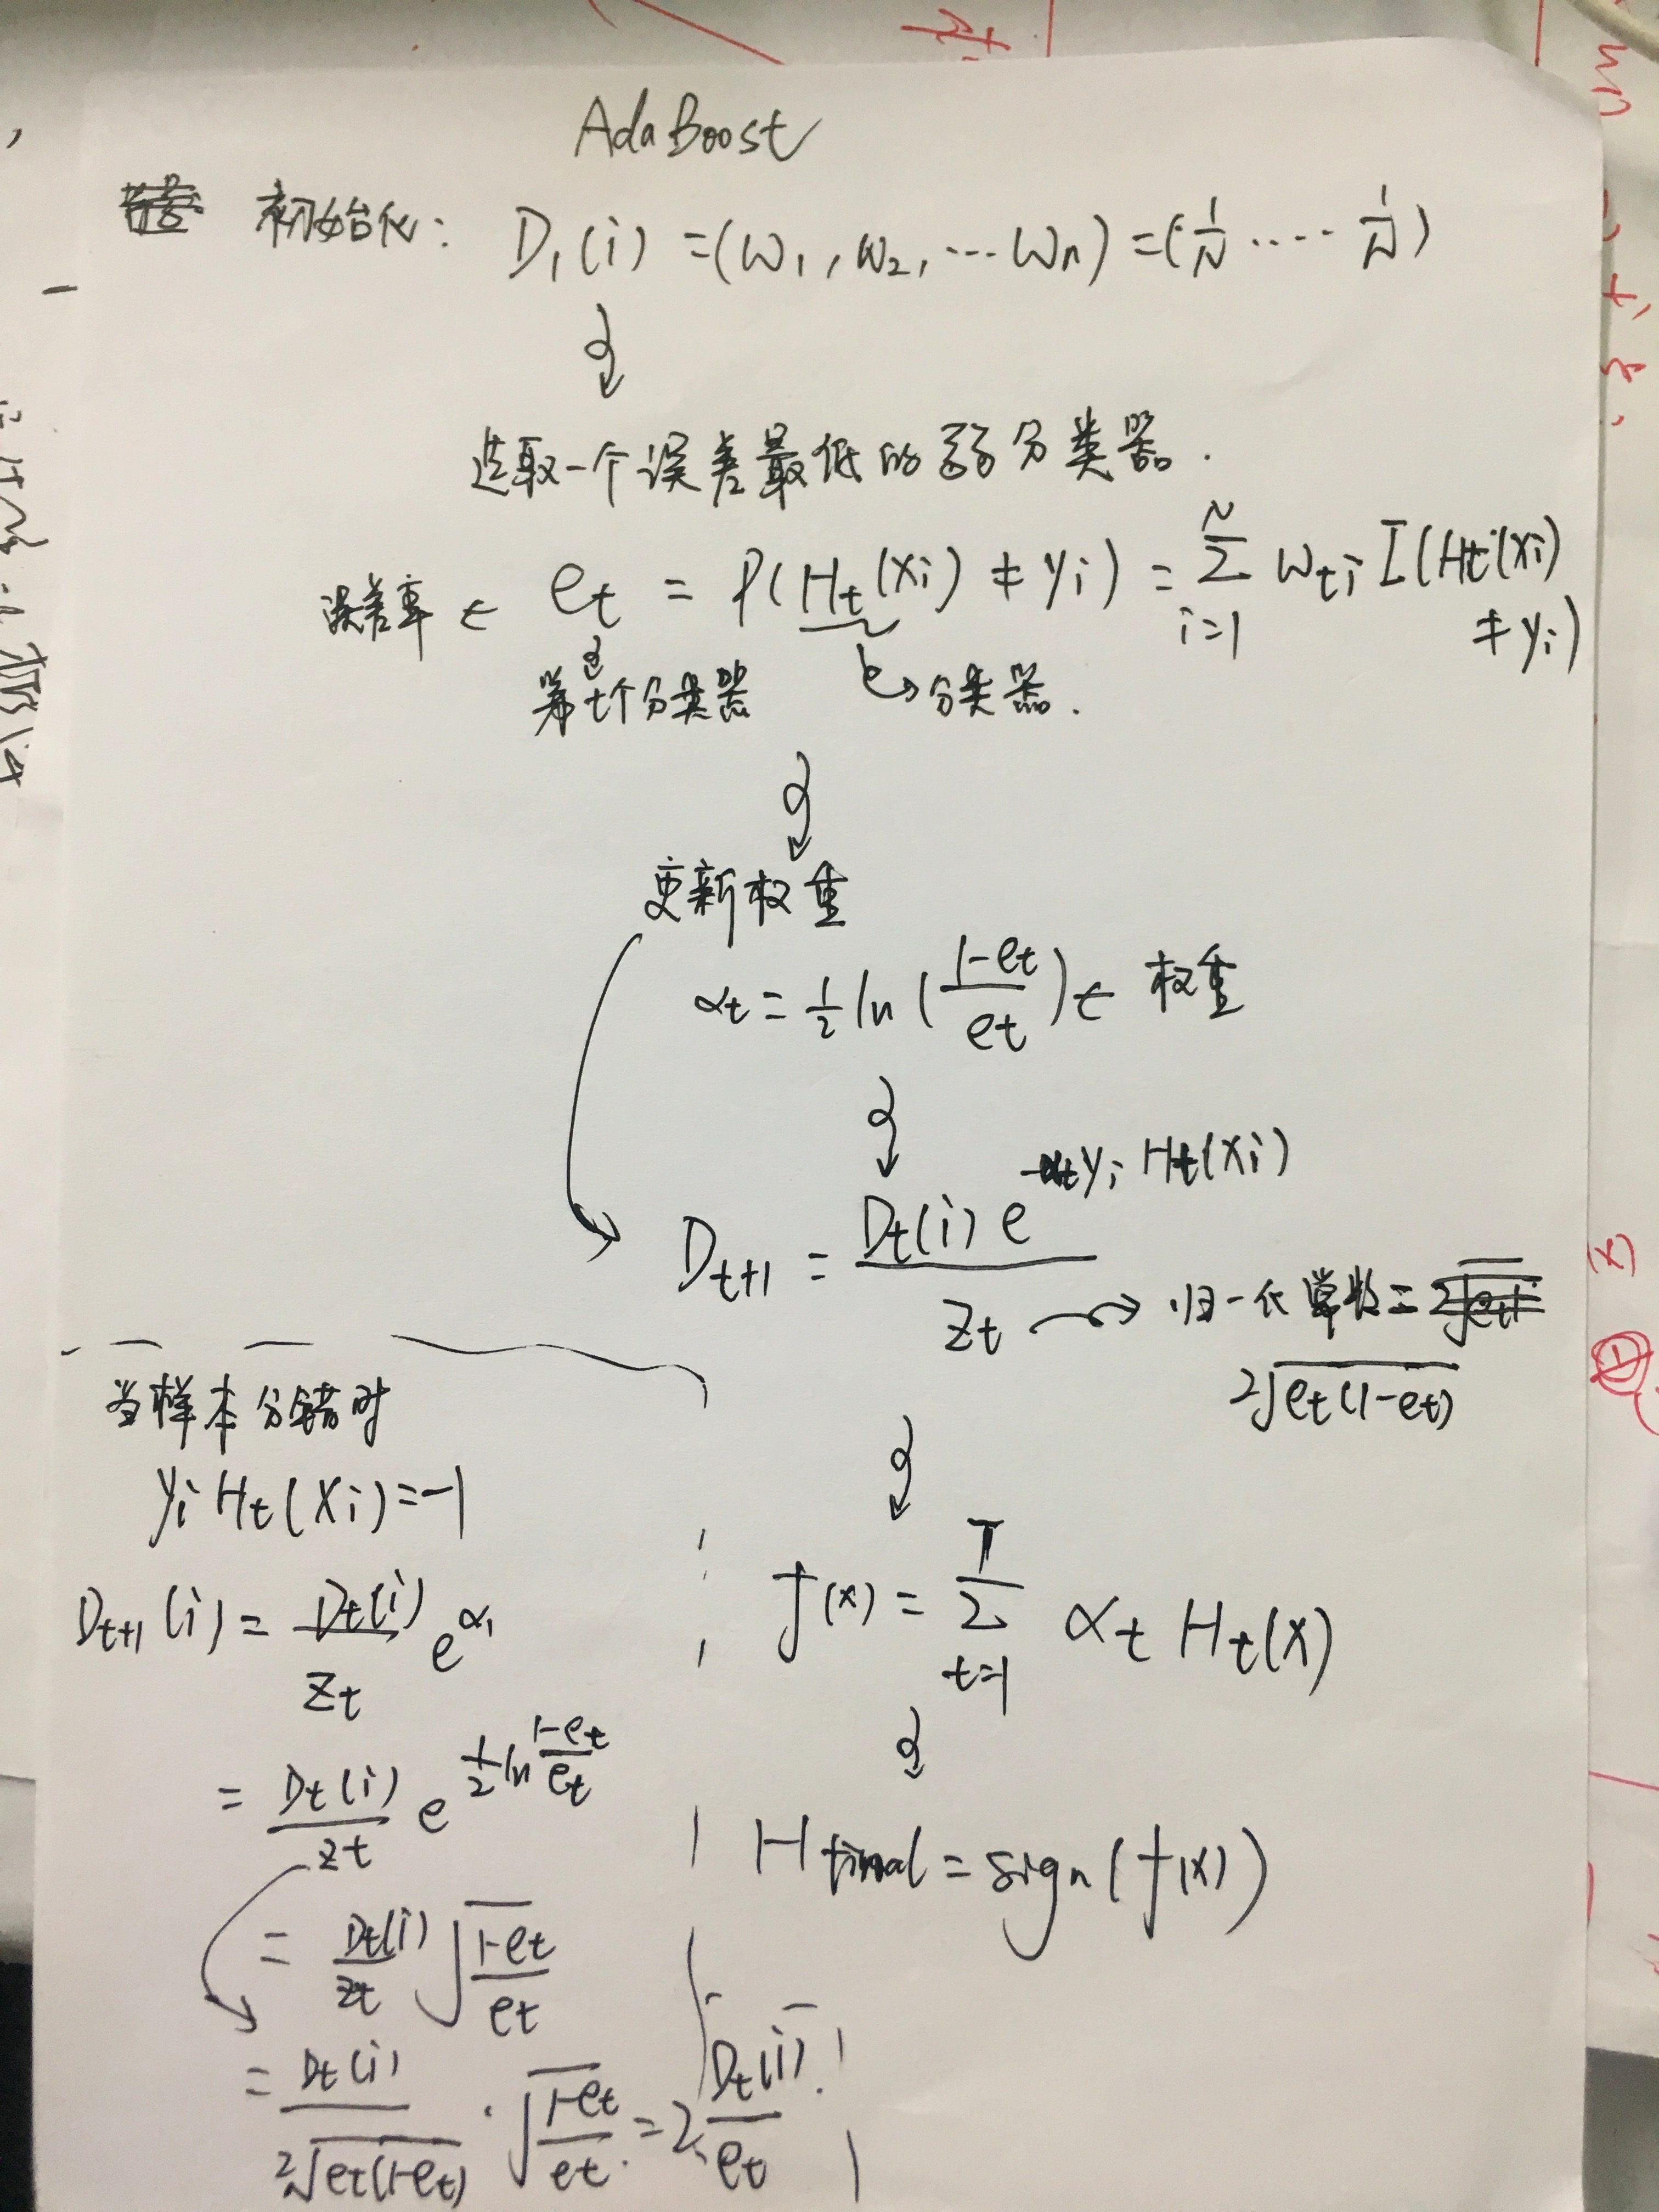 AdaBoost
初始化: D₁(i) =(ω₁, ω₂, ... ωn) =(1/N .... 1/N)
选取一个误差最低的弱分类器.
误差率 ← e_t = P(H_t(x_i) ≠ y_i) = Σ_{i=1}^{N} ω_{ti} I(H_t(x_i) ≠ y_i)
第t个分类器 分类器.
更新权重
α_t = 1/2 ln(1-e_t / e_t) ← 权重
D_{t+1} = D_t(i) e^{-α_t y_i H_t(x_i)} / Z_t → 归一化常数 =
2√(e_t(1-e_t))
f(x) = Σ_{t=1}^{T} α_t H_t(x)
H final = sign(f(x))
当样本分错时
y_i H_t(x_i) = -1
D_{t+1}(i) = D_t(i)/Z_t e^{α₁}
= D_t(i)/Z_t e^{1/2 ln 1-e_t/e_t}
= D_t(i)/Z_t √(1-e_t / e_t)
= D_t(i) / 2√(e_t(1-e_t)) · √(1-e_t / e_t) = 2 D_t(i)/e_t